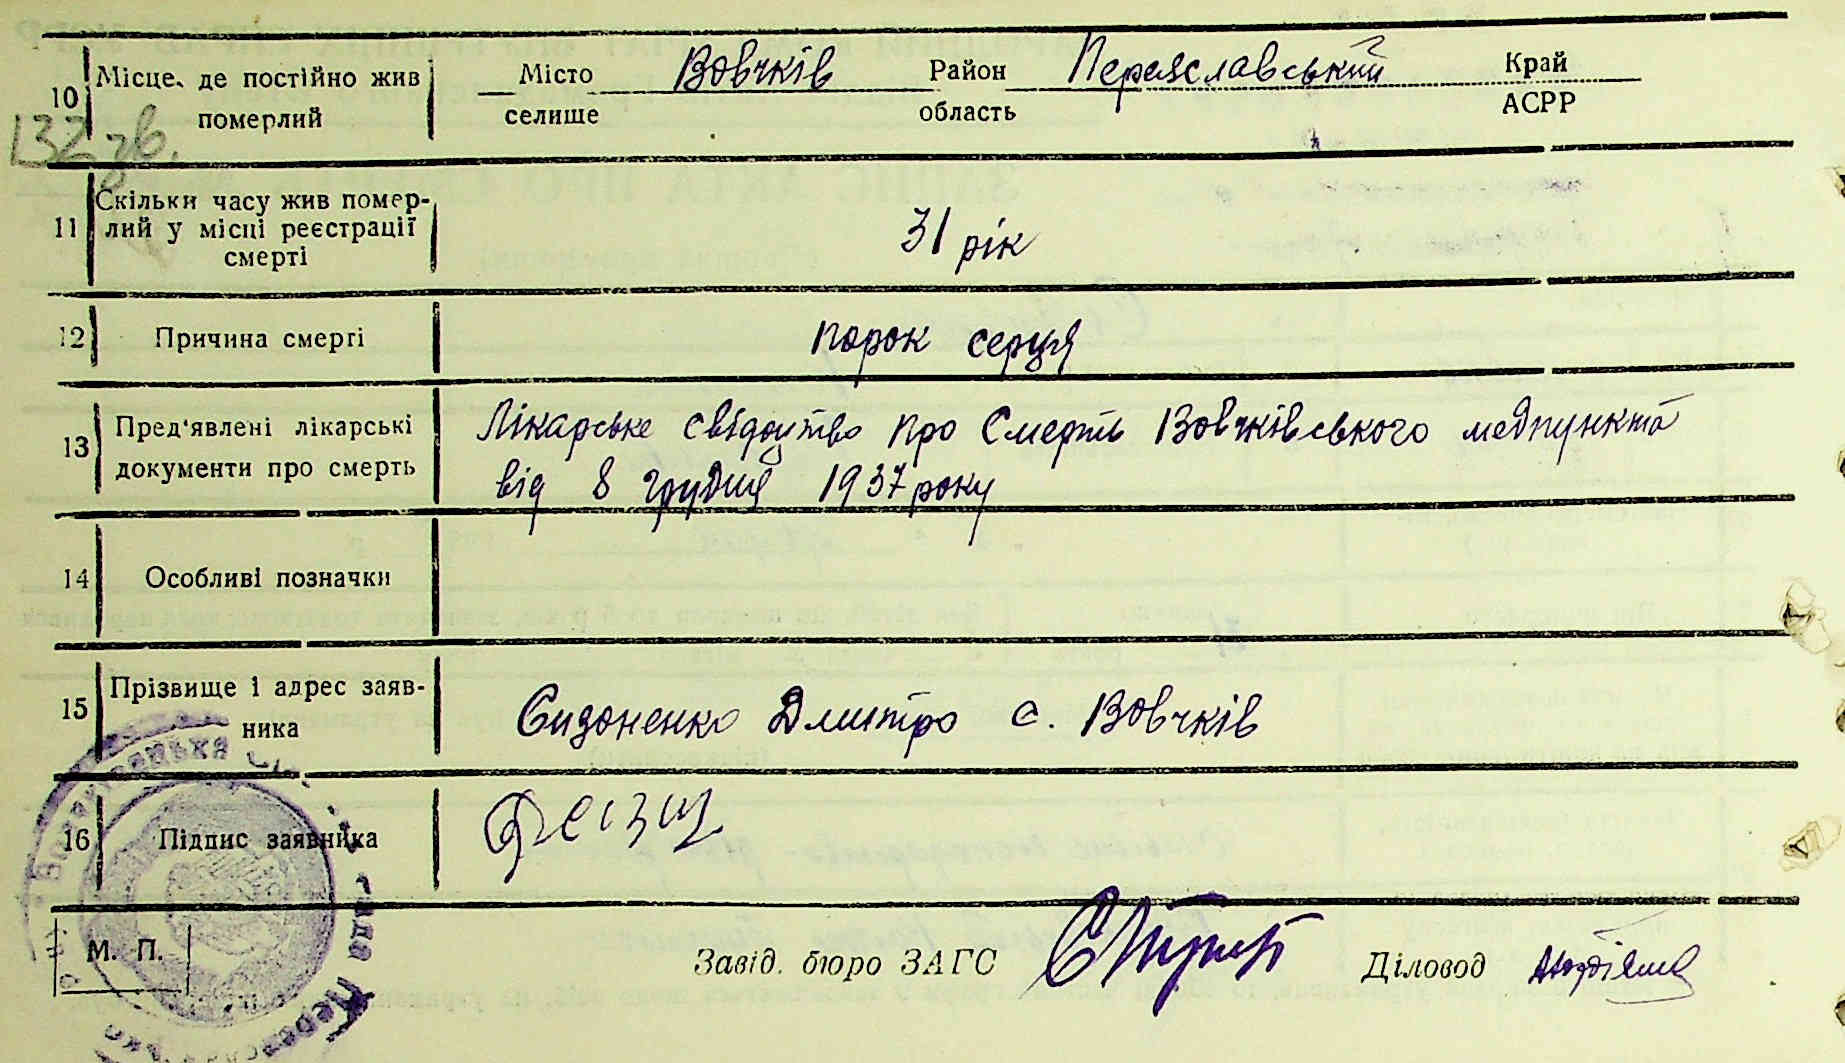 10 Місце, де постійно жив померлий Місто селище Вовчків Район область Переяславський Край АСРР
132 зв.
11 Скільки часу жив померлий у місці реєстрації смерті 31 рік
12 Причина смерті порок серця
13 Пред'явлені лікарські документи про смерть Лікарське свідоцтво про смерть Вовчківського медпункта
від 8 грудня 1937 року
14 Особливі позначки
15 Прізвище і адрес заявника Сидоненко Дмитро с. Вовчків
16 Підпис заявника
М. П.
Завід. бюро ЗАГС Діловод